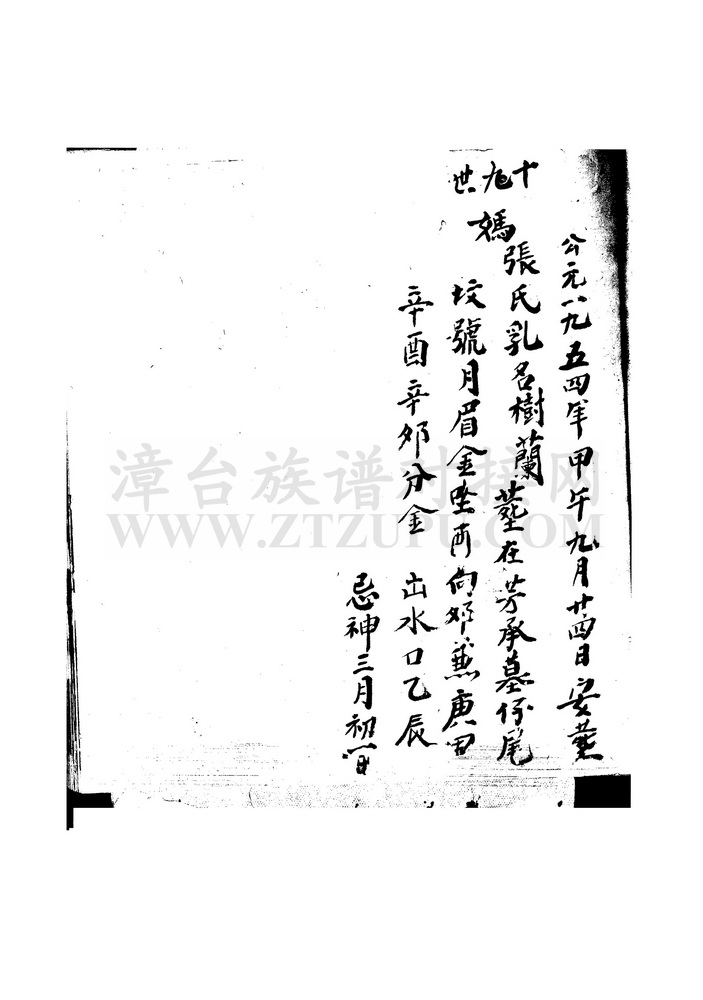 公元一九五四年甲午九月廿四日安葬
十九世
媽
張氏乳名樹蘭葬在芳承墓仔尾
坟號月眉金坐酉向卯兼庚甲
辛酉辛卯分金 出水口乙辰
忌神三月初日
漳台族谱对接网
WWW.ZTZUPU.COM